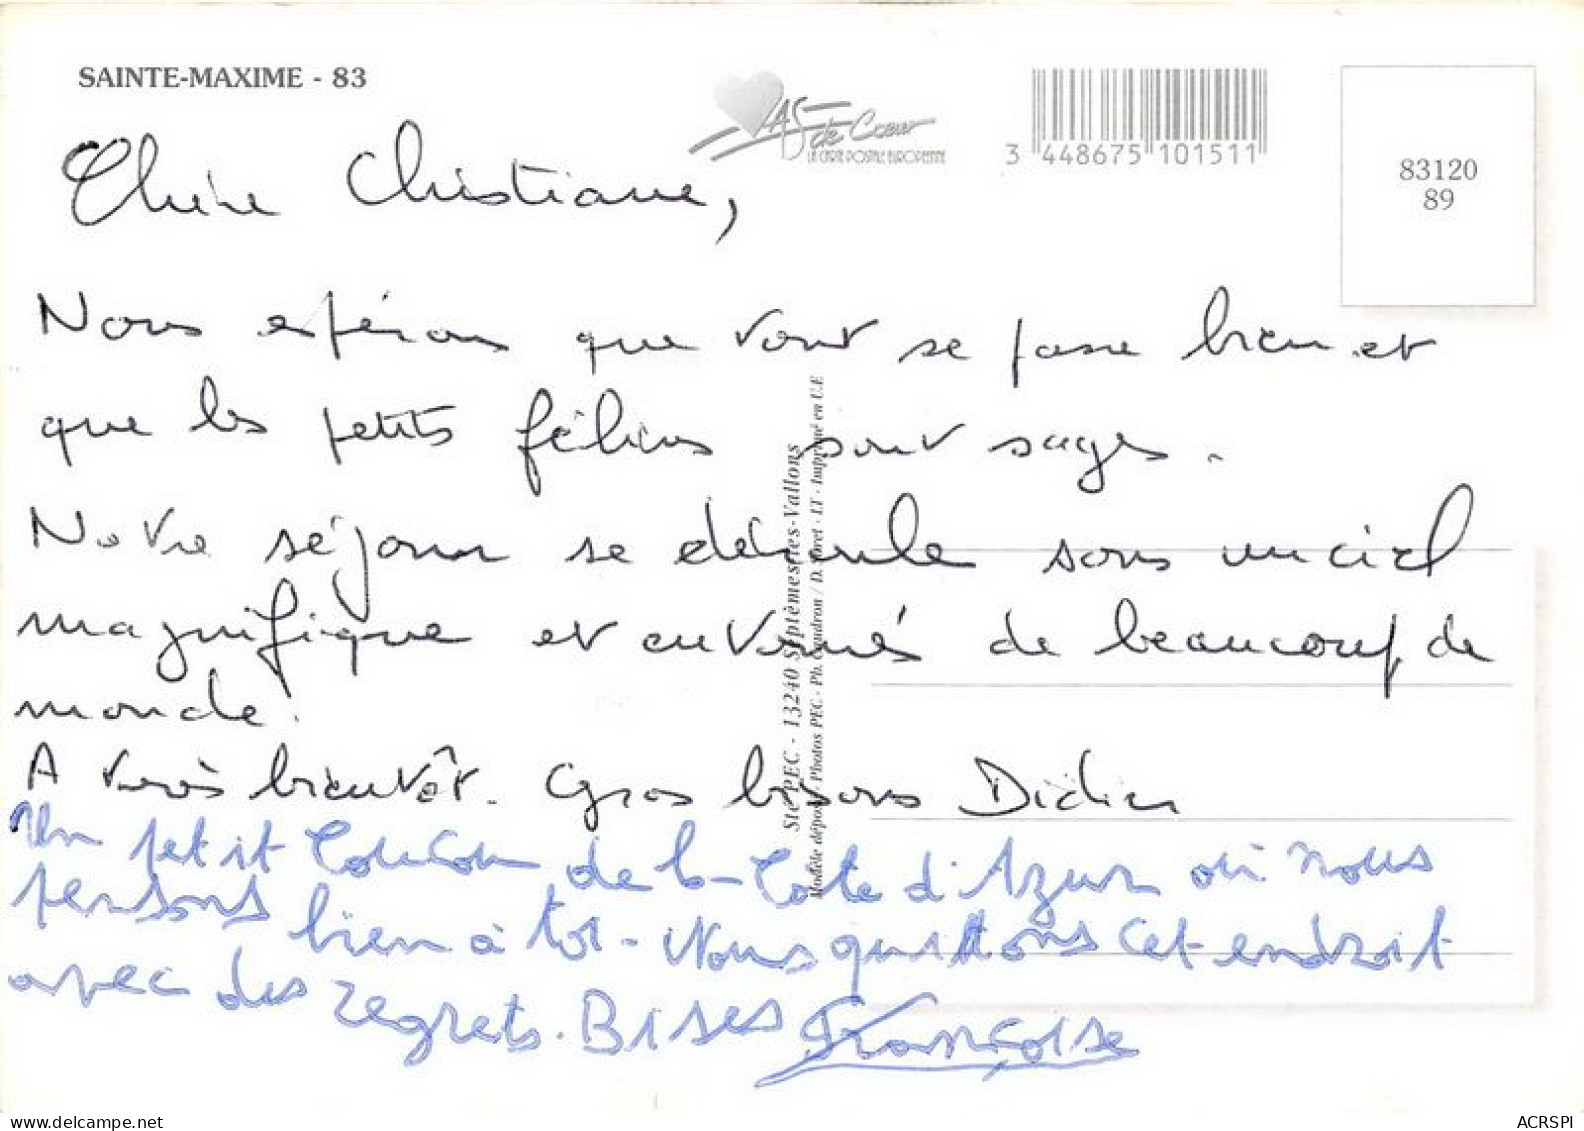 SAINTE-MAXIME - 83
AS de Cœur
LA CARTE POSTALE EUROPÉENNE
3 448675 101511
83120
89
Chère Christiane,
Nous espérons que tout se passe bien et
que les petits félins sont sages.
Notre séjour se déroule sous un ciel
magnifique et entourés de beaucoup de
monde.
A très bientôt. Gros bisous Didier
Un petit Coucou de la Côte d'Azur où nous
pensons bien à toi - Nous quittons cet endroit
avec des regrets. Bises Françoise
Sté PEC - 13240 Septèmes-les-Vallons
Modèle déposé - Photos PEC - Ph. / D. - LT - Imprimé en U.E
www.delcampe.net
ACRSPI